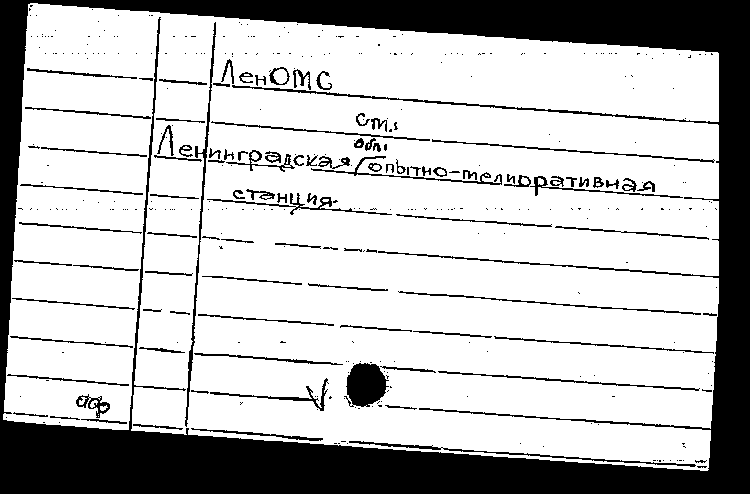 ЛенОМС
ст.
обл.
Ленинградская опытно-мелиоративная
станция